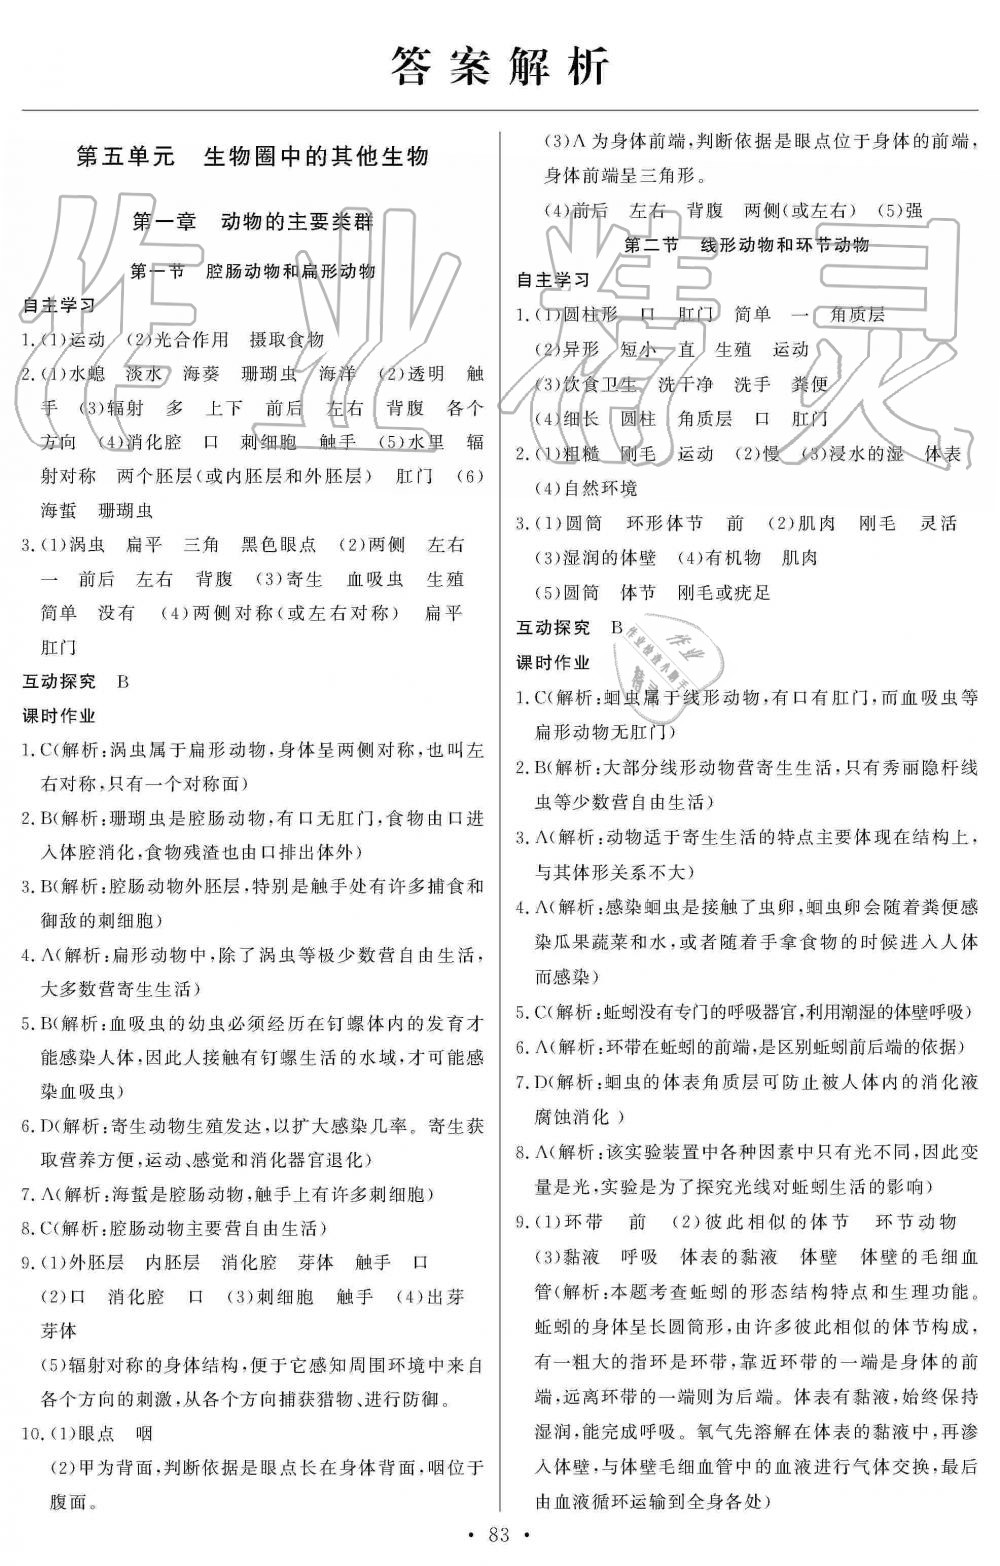 答案解析
第五单元 生物圈中的其他生物
第一章 动物的主要类群
第一节 腔肠动物和扁形动物
自主学习
1.(1)运动 (2)光合作用 摄取食物
2.(1)水螅 淡水 海葵 珊瑚虫 海洋 (2)透明 触
手 (3)辐射 多 上下 前后 左右 背腹 各个
方向 (4)消化腔 口 刺细胞 触手 (5)水里 辐
射对称 两个胚层(或内胚层和外胚层) 肛门 (6)
海蜇 珊瑚虫
3.(1)涡虫 扁平 三角 黑色眼点 (2)两侧 左右
一 前后 左右 背腹 (3)寄生 血吸虫 生殖
简单 没有 (4)两侧对称(或左右对称) 扁平
肛门
互动探究 B
课时作业
1.C(解析:涡虫属于扁形动物,身体呈两侧对称,也叫左
右对称,只有一个对称面)
2.B(解析:珊瑚虫是腔肠动物,有口无肛门,食物由口进
入体腔消化,食物残渣也由口排出体外)
3.B(解析:腔肠动物外胚层,特别是触手处有许多捕食和
御敌的刺细胞)
4.A(解析:扁形动物中,除了涡虫等极少数营自由生活,
大多数营寄生生活)
5.B(解析:血吸虫的幼虫必须经历在钉螺体内的发育才
能感染人体,因此人接触有钉螺生活的水域,才可能感
染血吸虫)
6.D(解析:寄生动物生殖发达,以扩大感染几率。寄生获
取营养方便,运动、感觉和消化器官退化)
7.A(解析:海蜇是腔肠动物,触手上有许多刺细胞)
8.C(解析:腔肠动物主要营自由生活)
9.(1)外胚层 内胚层 消化腔 芽体 触手 口
(2)口 消化腔 口 (3)刺细胞 触手 (4)出芽
芽体
(5)辐射对称的身体结构,便于它感知周围环境中来自
各个方向的刺激,从各个方向捕获猎物、进行防御。
10.(1)眼点 咽
(2)甲为背面,判断依据是眼点长在身体背面,咽位于
腹面。
(3)A 为身体前端,判断依据是眼点位于身体的前端,
身体前端呈三角形。
(4)前后 左右 背腹 两侧(或左右) (5)强
第二节 线形动物和环节动物
自主学习
1.(1)圆柱形 口 肛门 简单 一 角质层
(2)异形 短小 直 生殖 运动
(3)饮食卫生 洗干净 洗手 粪便
(4)细长 圆柱 角质层 口 肛门
2.(1)粗糙 刚毛 运动 (2)慢 (3)浸水的湿 体表
(4)自然环境
3.(1)圆筒 环形体节 前 (2)肌肉 刚毛 灵活
(3)湿润的体壁 (4)有机物 肌肉
(5)圆筒 体节 刚毛或疣足
互动探究 B
课时作业
1.C(解析:蛔虫属于线形动物,有口有肛门,而血吸虫等
扁形动物无肛门)
2.B(解析:大部分线形动物营寄生生活,只有秀丽隐杆线
虫等少数营自由生活)
3.A(解析:动物适于寄生生活的特点主要体现在结构上,
与其体形关系不大)
4.A(解析:感染蛔虫是接触了虫卵,蛔虫卵会随着粪便感
染瓜果蔬菜和水,或者随着手拿食物的时候进入人体
而感染)
5.C(解析:蚯蚓没有专门的呼吸器官,利用潮湿的体壁呼吸)
6.A(解析:环带在蚯蚓的前端,是区别蚯蚓前后端的依据)
7.D(解析:蛔虫的体表角质层可防止被人体内的消化液
腐蚀消化)
8.A(解析:该实验装置中各种因素中只有光不同,因此变
量是光,实验是为了探究光线对蚯蚓生活的影响)
9.(1)环带 前 (2)彼此相似的体节 环节动物
(3)黏液 呼吸 体表的黏液 体壁 体壁的毛细血
管(解析:本题考查蚯蚓的形态结构特点和生理功能。
蚯蚓的身体呈长圆筒形,由许多彼此相似的体节构成,
有一粗大的指环是环带,靠近环带的一端是身体的前
端,远离环带的一端则为后端。体表有黏液,始终保持
湿润,能完成呼吸。氧气先溶解在体表的黏液中,再渗
入体壁,与体壁毛细血管中的血液进行气体交换,最后
由血液循环运输到全身各处)
• 83 •
作业精灵
作业
作业检查小助手
精灵